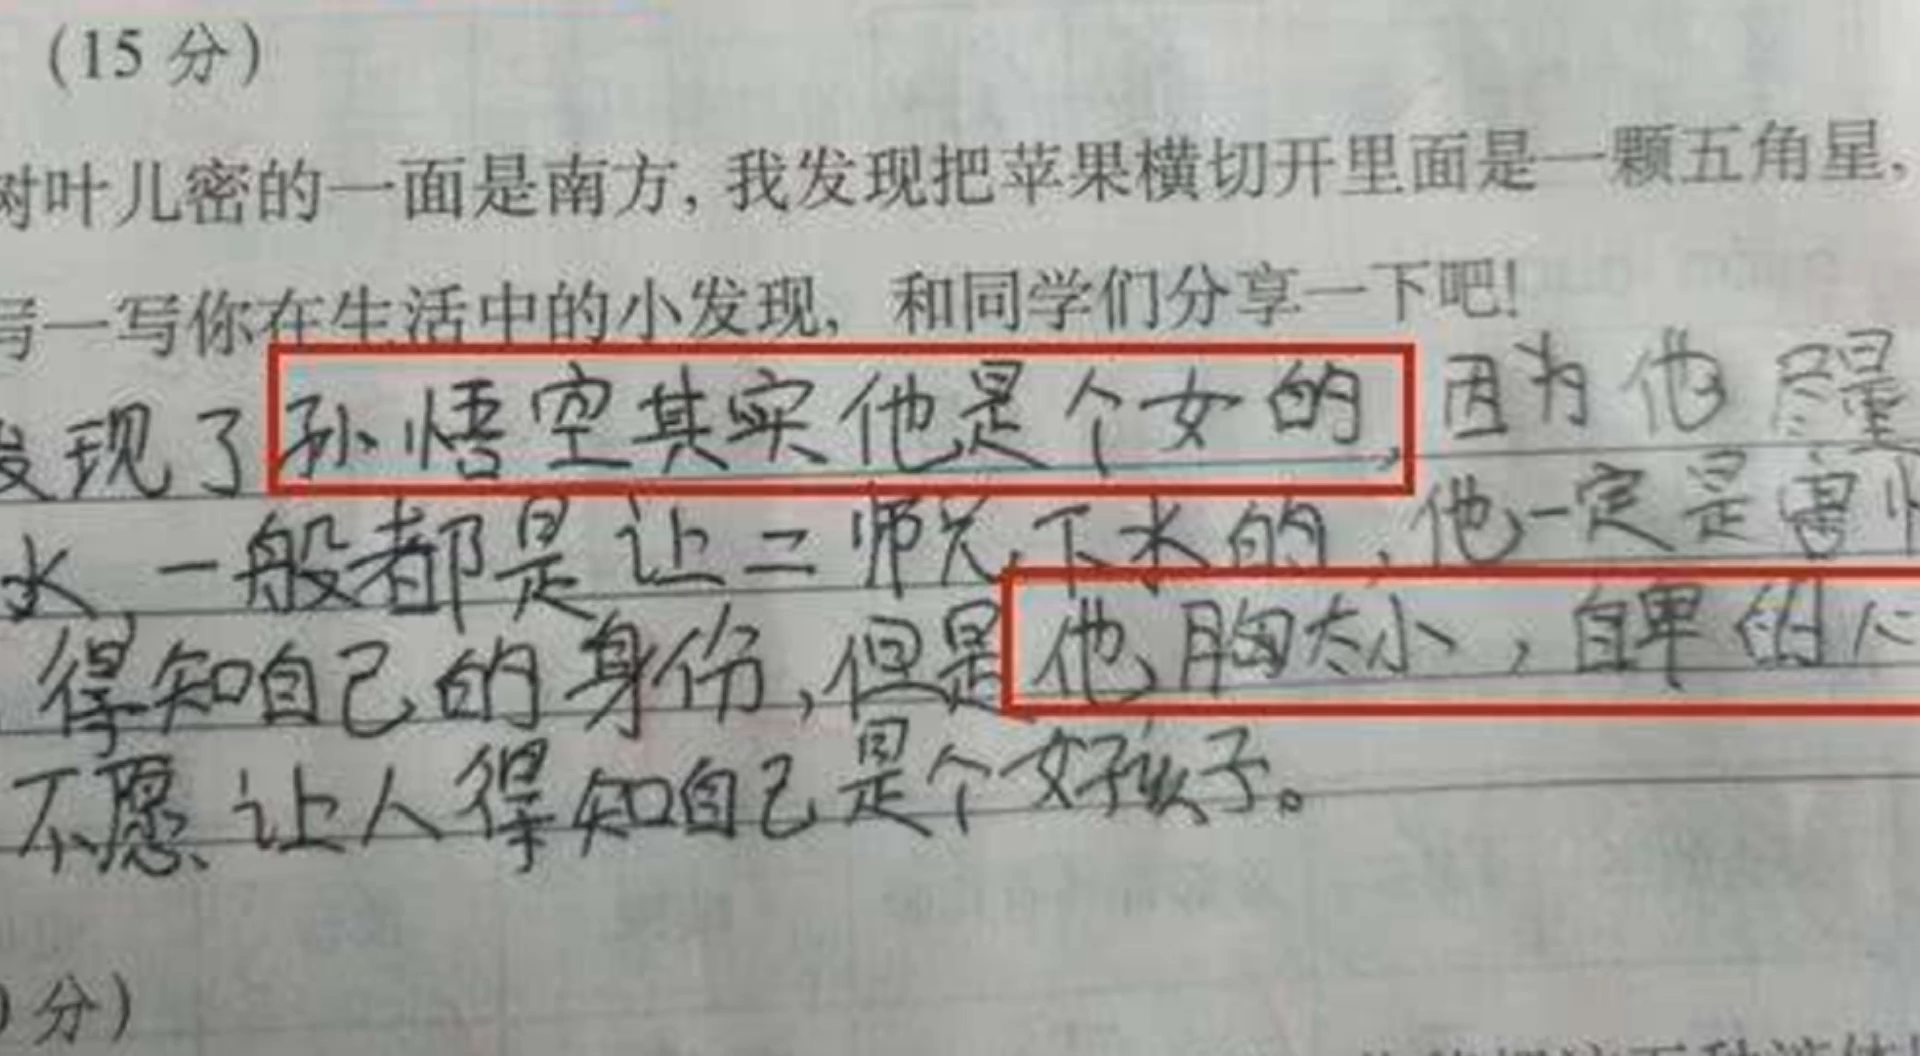 (15 分)
树叶儿密的一面是南方,我发现把苹果横切开里面是一颗五角星,
写一写你在生活中的小发现,和同学们分享一下吧!
发现了孙悟空其实他是个女的,因为他尽量
水,一般都是让二师兄下水的,他一定是害怕
得知自己的身份,但是他胸太小,自卑的心
不愿让人得知自己是个女孩子。
分)